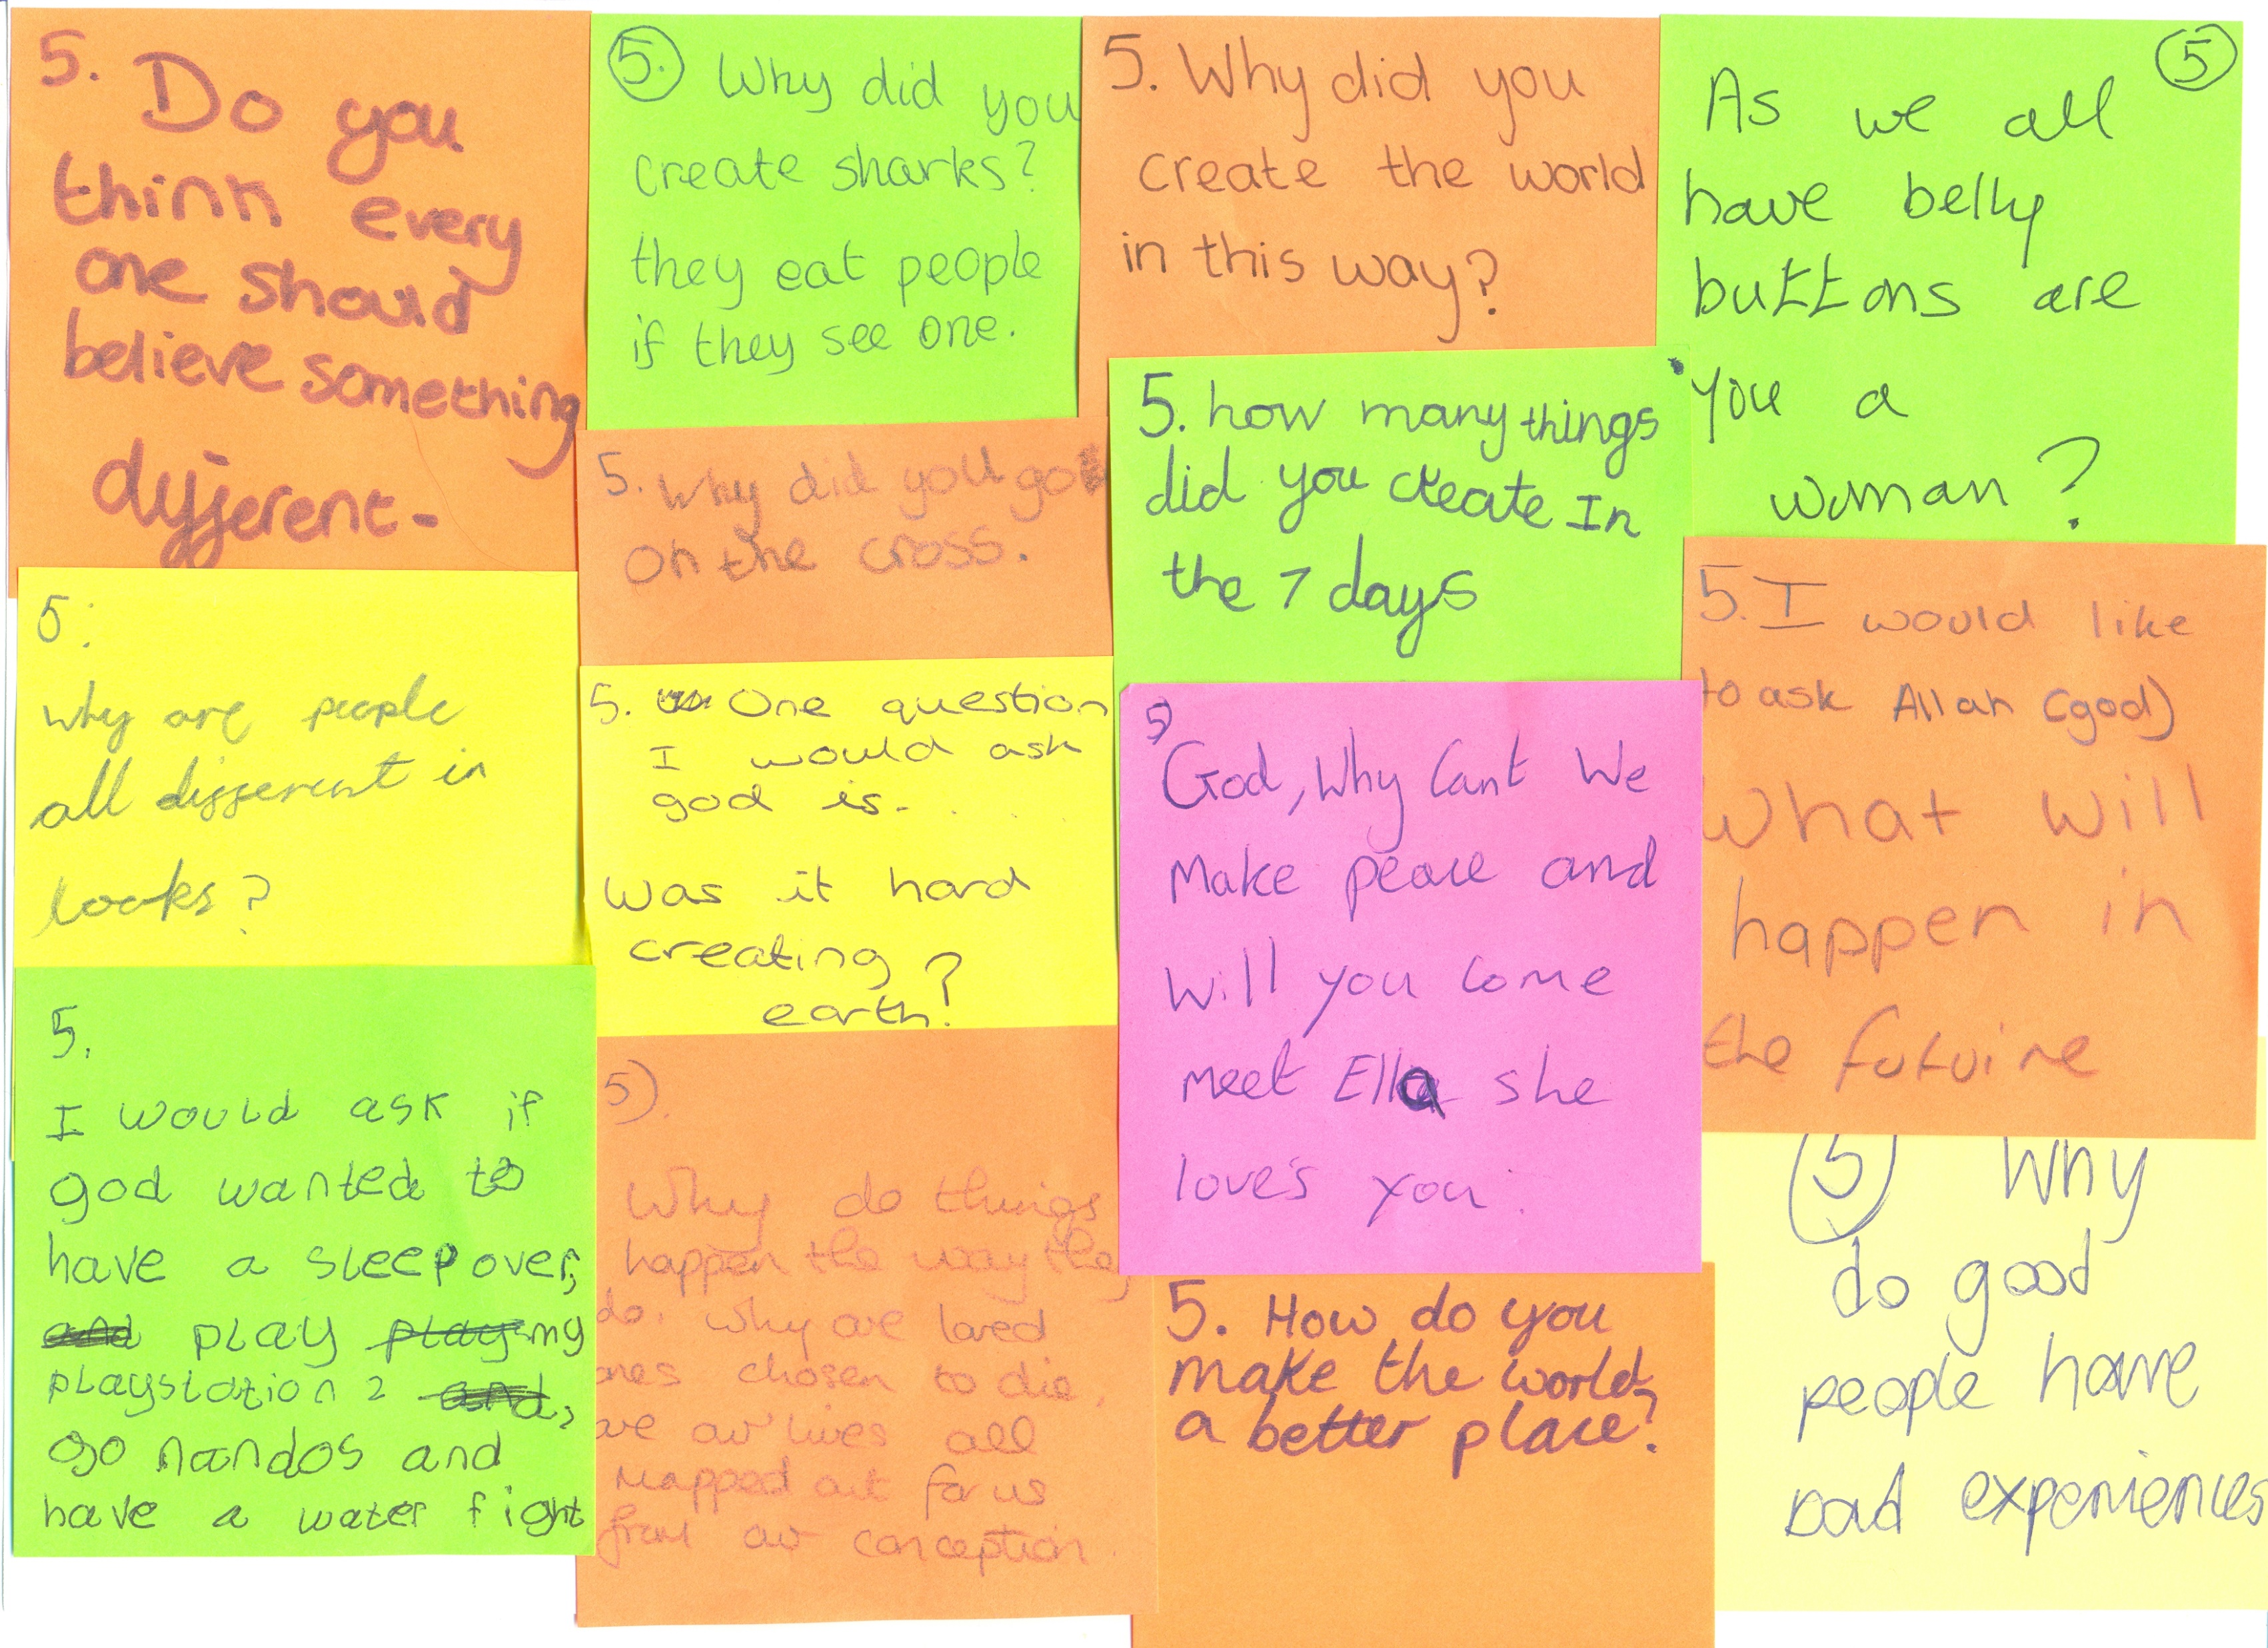 5. Do you
think every
one should
believe something
different-
5. Why did you
create sharks?
they eat people
if they see one.
5. Why did you
create the world
in this way?
5
As we all
have belly
buttons are
you a
woman?
5. Why did you go
on the cross.
5. how many things
did you create In
the 7 days
5.
why are people
all different in
looks?
5. One question
I would ask
god is...
Was it hard
creating
earth?
5)
God, Why Cant We
Make peace and
Will you come
meet Ella she
love's you.
5. I would like
to ask Allah (god)
what will
happen in
the futuire
5.
I would ask if
god wanted to
have a sleepover,
and play play my
playstation 2 and,
go nandos and
have a water fight
5).
Why do things
happen the way they
do. Why are loved
ones chosen to die.
are our lives all
mapped out for us
from our conception
5. How do you
make the world
a better place?
5 Why
do good
people have
bad experiences